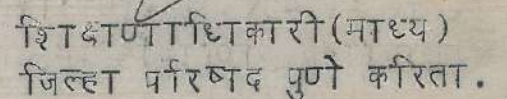 शिक्षणाधिकारी (माध्य)
जिल्हा परिषद पुणे करिता.